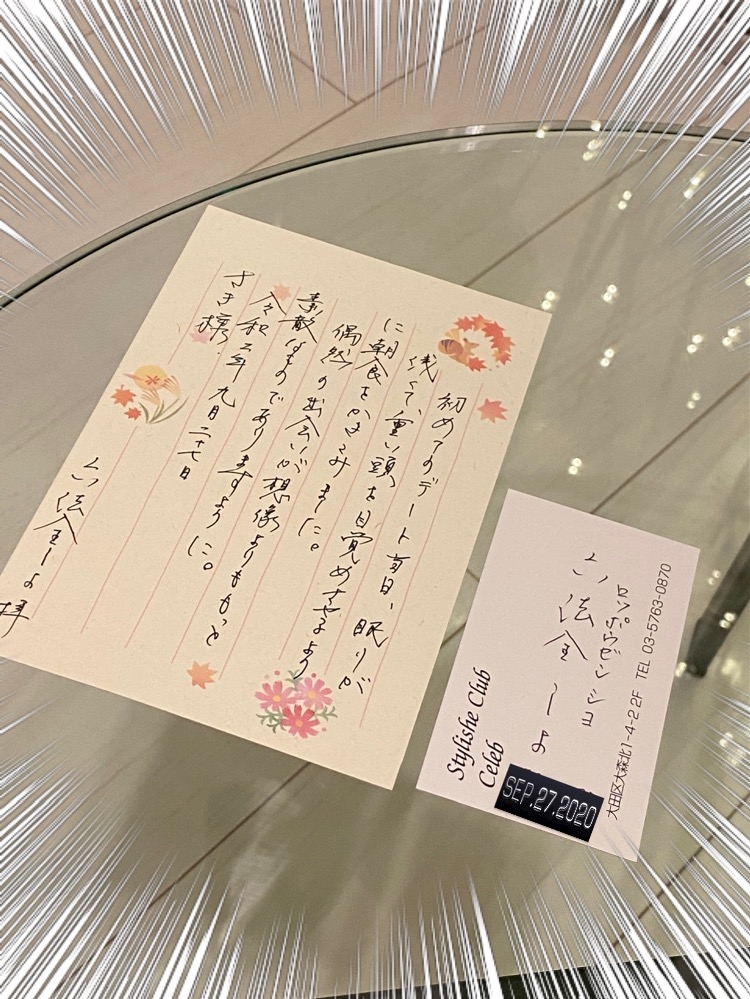 初めてのデート当日、眠りが
浅くて、重い頭を目覚めさせるよう
に朝食をかきこみました。
偶然の出会いが想像よりももっと
素敵なものでありますように。
令和二年九月二十七日
さき様
六法全しよ拝
ロッポウゼンショ
六法全しよ
Stylishe Club
Celeb
SEP.27.2020
大田区大森北1-4-2 2F TEL 03-5763-0870